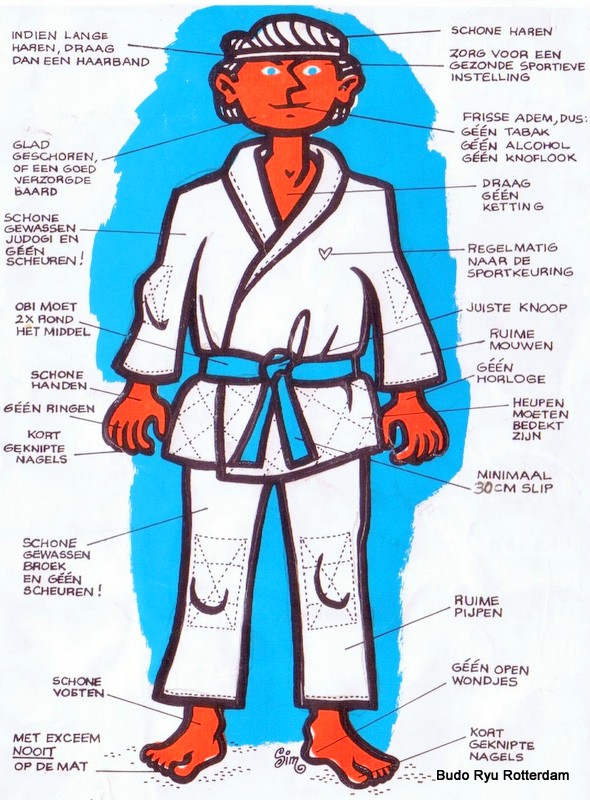 INDIEN LANGE
HAREN, DRAAG
DAN EEN HAARBAND
GLAD
GESCHOREN,
OF EEN GOED
VERZORGDE
BAARD
SCHONE
GEWASSEN
JUDOGI EN
GÉÉN
SCHEUREN!
OBI MOET
2X ROND
HET MIDDEL
SCHONE
HANDEN
GÉÉN RINGEN
KORT
GEKNIPTE
NAGELS
SCHONE
GEWASSEN
BROEK
EN GÉÉN
SCHEUREN!
SCHONE
VOETEN
MET EXCEEM
NOOIT
OP DE MAT
SCHONE HAREN
ZORG VOOR EEN
GEZONDE SPORTIEVE
INSTELLING
FRISSE ADEM, DUS:
GÉÉN TABAK
GÉÉN ALCOHOL
GÉÉN KNOFLOOK
DRAAG
GÉÉN
KETTING
REGELMATIG
NAAR DE
SPORTKEURING
JUISTE KNOOP
RUIME
MOUWEN
GÉÉN
HORLOGE
HEUPEN
MOETEN
BEDEKT
ZIJN
MINIMAAL
30CM SLIP
RUIME
PIJPEN
GÉÉN OPEN
WONDJES
KORT
GEKNIPTE
NAGELS
Sim
Budo Ryu Rotterdam